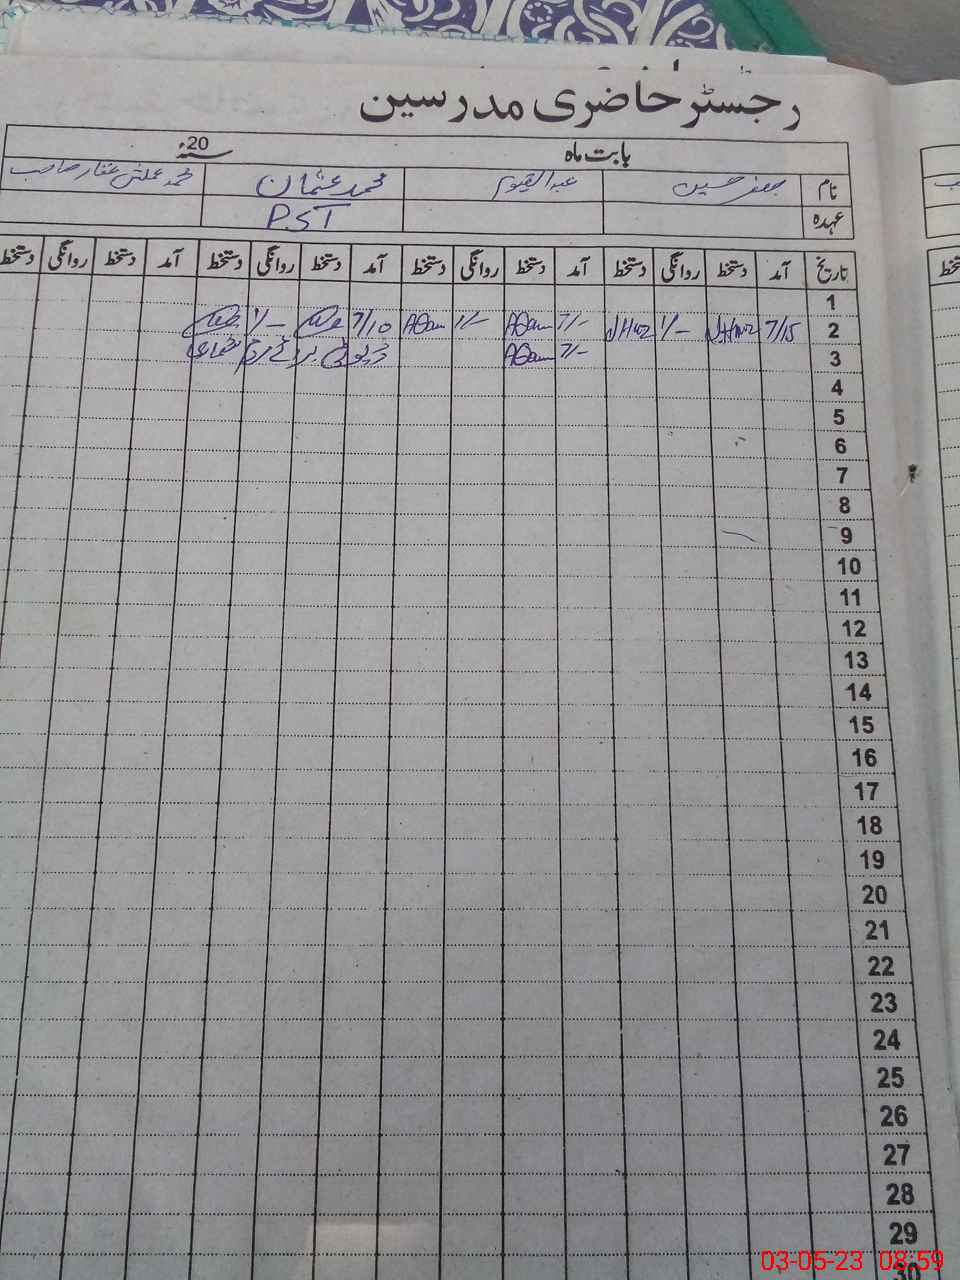 رجسٹر حاضری مدرسین
بابت ماہ سنہ 20ء
نام جعفر حسین عبدالقیوم محمد عثمان محمد غفار صاحب
عہدہ P.S.T
تاریخ آمد دستخط روانگی دستخط آمد دستخط روانگی دستخط آمد دستخط روانگی دستخط آمد دستخط روانگی دستخط
1
2 7/15 1/- 7/- 1/- 7/10 1/-
3 7/- ڈیوٹی برائے مردم شماری
4
5
6
7
8
9
10
11
12
13
14
15
16
17
18
19
20
21
22
23
24
25
26
27
28
29
30
03-05-23 08:59